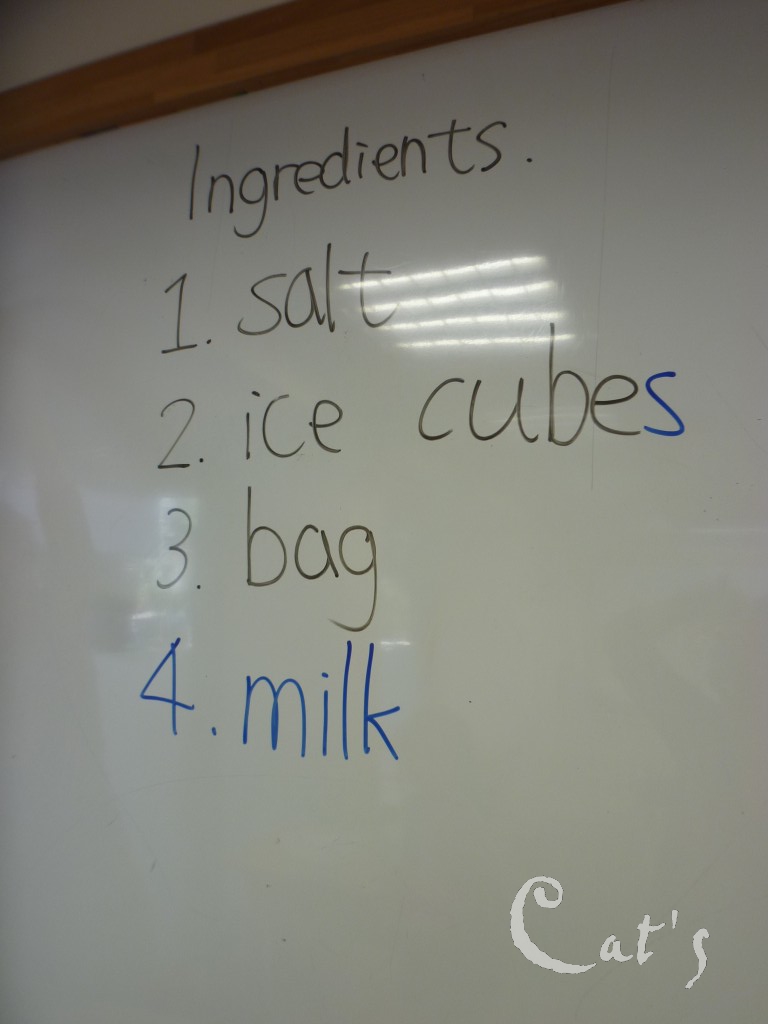 Ingredients.
1. salt
2. ice cubes
3. bag
4. milk
Cat's